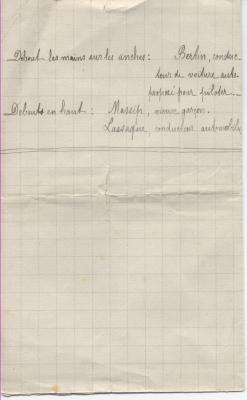 Debout les mains sur les anches : Berlin, conduc
teur de voiture, auto
proposé pour piloter. _
Debouts en haut : Massip, vieux garçon.
Lassague, conducteur automobile